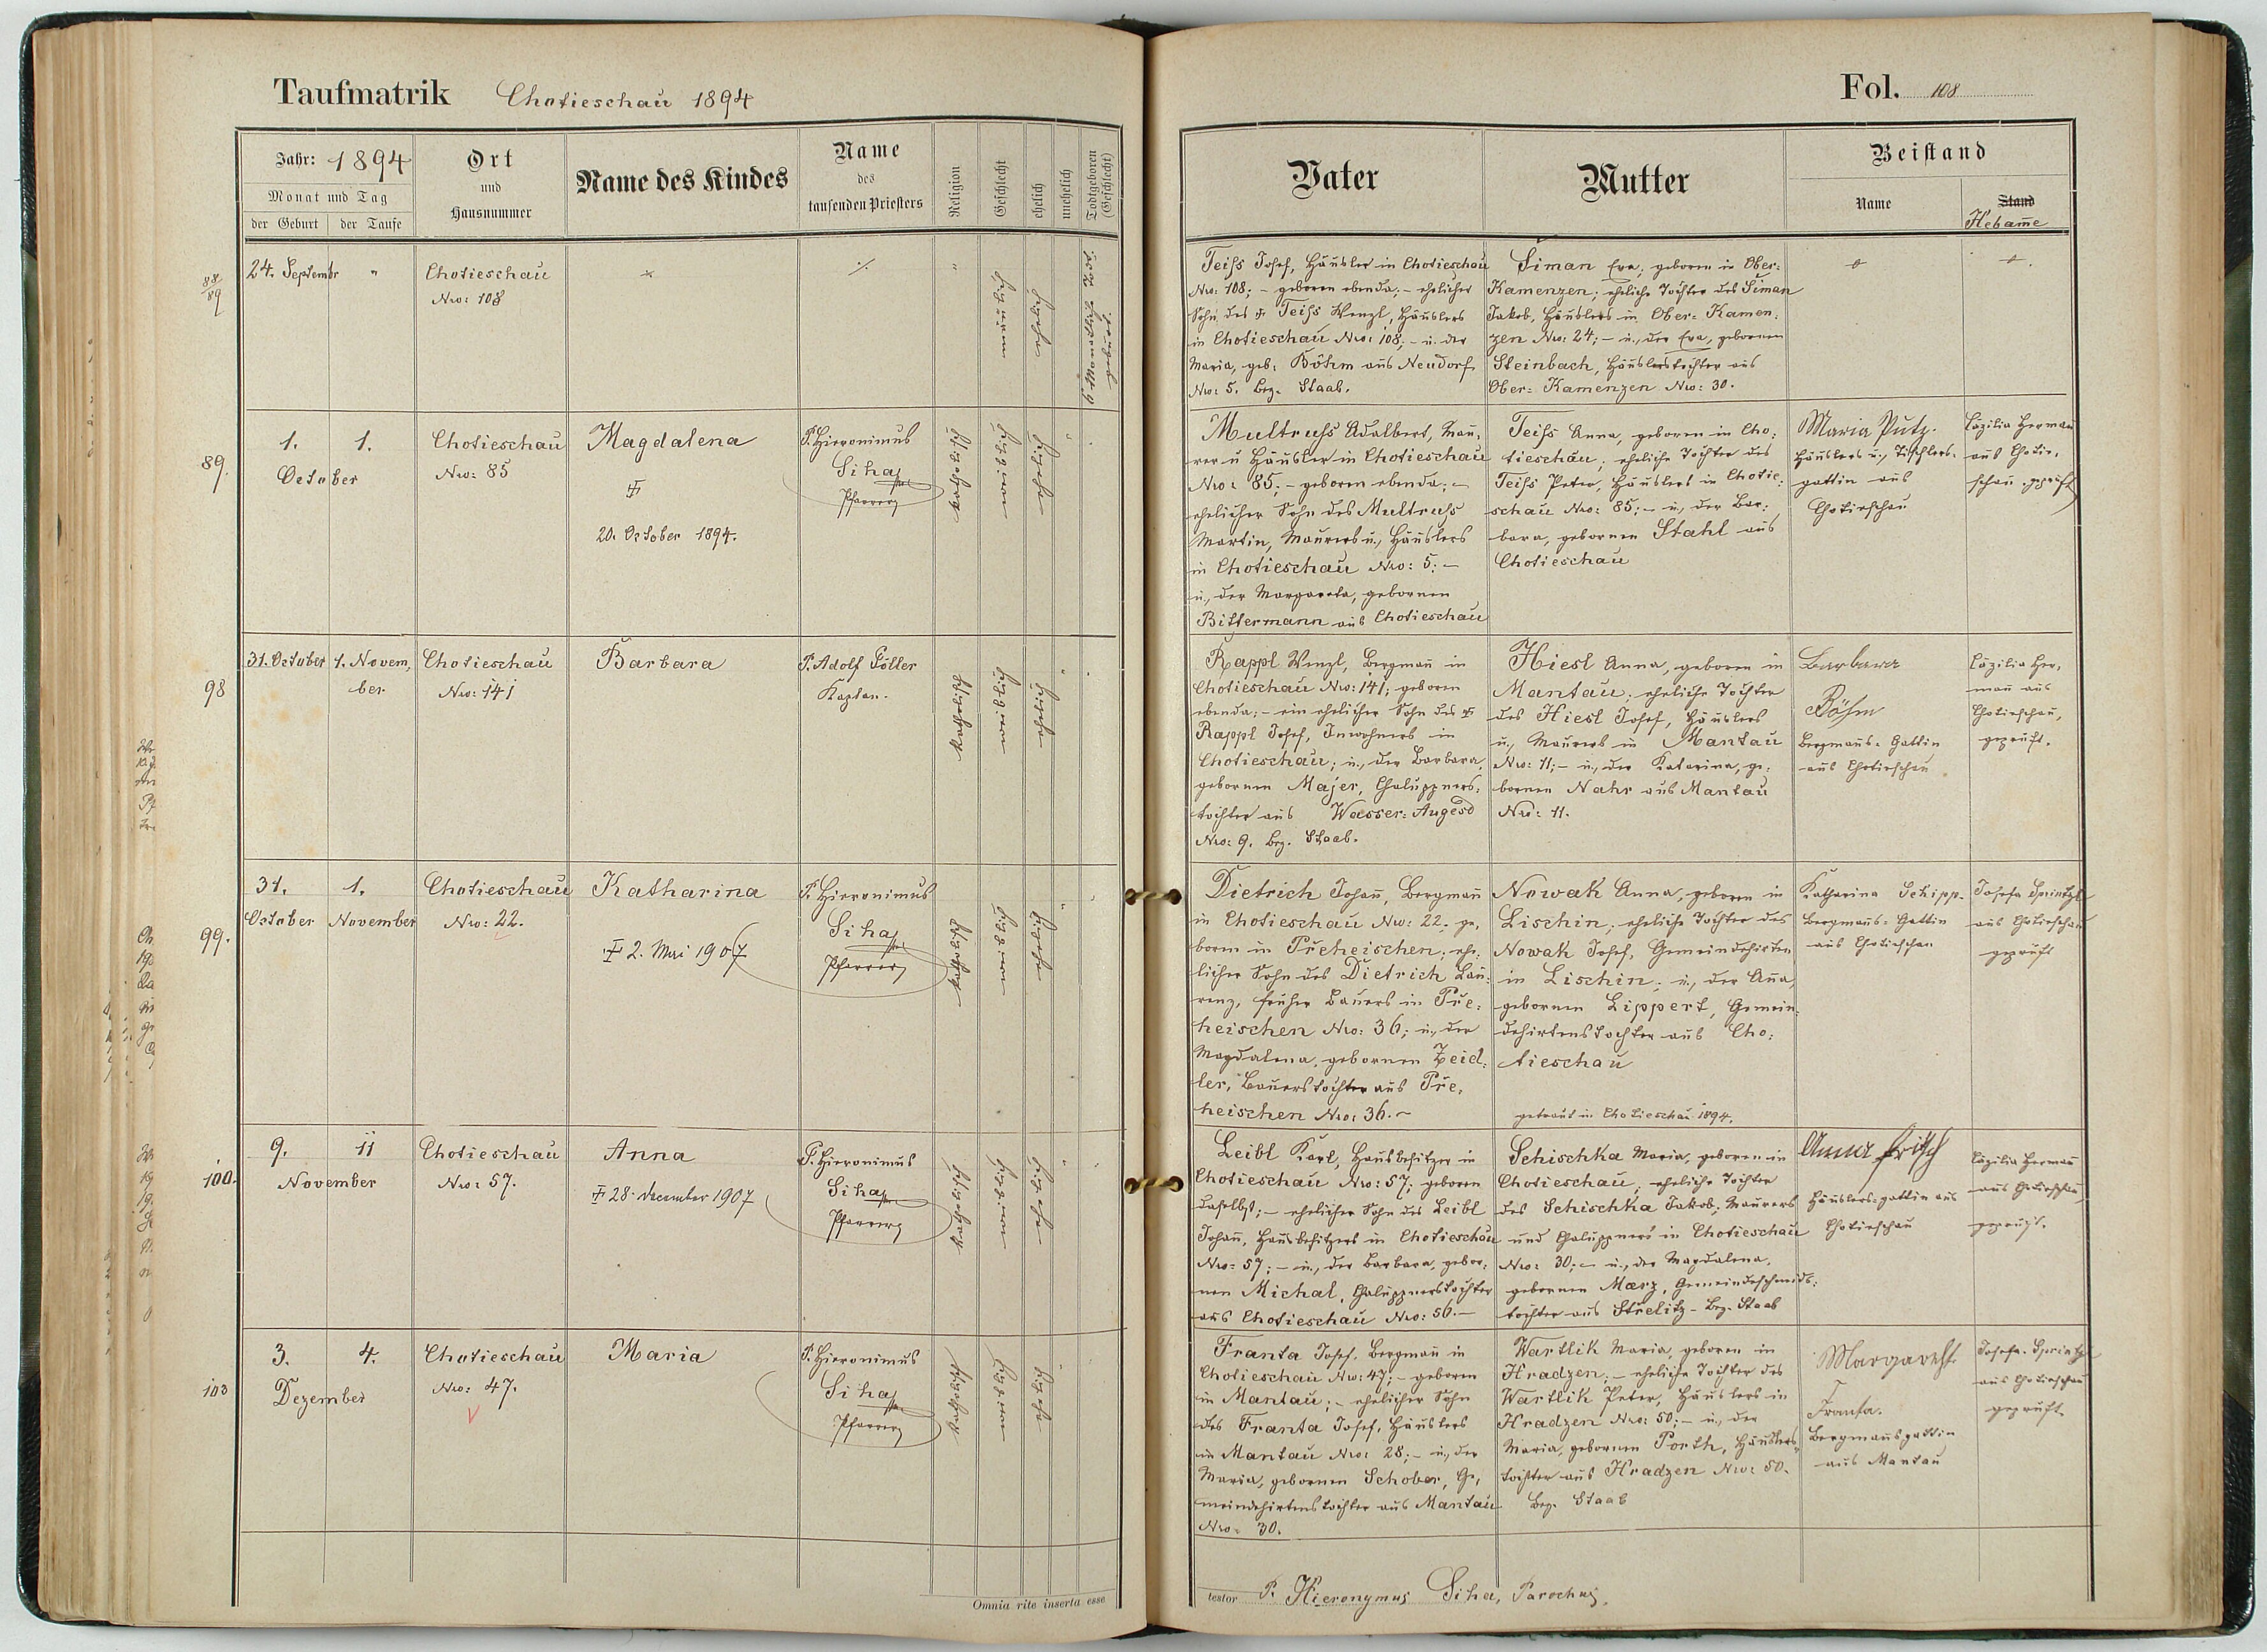 Taufmatrik Chotieschau 1894
Fol. 108
Jahr: 1894
Monat und Tag
der Geburt
der Taufe
Ort
und
Hausnummer
Name des Kindes
Name
des
taufenden Priesters
Religion
Geschlecht
ehelich
unehelich
Todtgeboren
(Geschlecht)
Vater
Mutter
Beistand
Name
Stand
Hebam̄e
88/89
24. Septembr "
Chotieschau
Nro: 108
Teiss Josef, Häusler in Chotieschau
Nro: 108; - geboren ebenda; - ehelicher
Sohn des Teiss Wenzl, Häuslers
in Chotieschau Nro: 108; - u. der
Maria, geb: Böhm aus Neudorf
Nro: 5. Bez. Staab.
Siman Eva; geboren in Ober=
Kamenzen; eheliche Tochter des Siman
Jakob, Häuslers in Ober= Kamen=
zen Nro: 24; - u., der Eva, gebornen
Steinbach, Häuslerstochter aus
Ober= Kamenzen Nro: 30.
89.
1. 1.
October
Chotieschau
Nro: 85
Magdalena
20. October 1894.
P. Hieronimus
Siha
Pfarrer
katholisch
Multruss Adalbert, Mau=
rer u Häusler in Chotieschau
Nro: 85; - geboren ebenda; -
ehelicher Sohn des Multruss
Martin, Maurers u., Häuslers
in Chotieschau Nro: 5; -
u., der Margareta, gebornen
Bittermann aus Chotieschau
Teiss Anna, geboren in Cho=
tieschau; eheliche Tochter des
Teiss Peter, Häuslers in Chotie=
schau Nro: 85; - u., der Bar=
bara, gebornen Stahl aus
Chotieschau
Maria Putz.
Häuslers u., Tischlers=
gattin aus
Chotieschau
Cäzilia Herman
aus Chotie=
schau. geprüft
98
31. October 1. Novem,
ber
Chotieschau
Nro: 141
Barbara
P. Adolf Göller
Kaplan.
katholisch
Rappl Wenzl, Bergmañ in
Chotieschau Nro: 141; geboren
ebenda; - ein ehelicher Sohn des
Rappl Josef, Inwohners in
Chotieschau; u., der Barbara,
gebornen Majer, Chaluppners=
tochter aus Wasser= Augesd
Nro: 9. Bez. Staab.
Hiesl Anna, geboren in
Mantau; eheliche Tochter
des Hiesl Josef, Häuslers
u., Maurers in Mantau
Nro: 11; - u., der Katarina, ge=
bornen Nahr aus Mantau
Nro: 11.
Barbara
Böhm
Bergmañs= Gattin
aus Chotieschau
Cäzilia Her=
mañ aus
Chotieschau,
geprüft.
99.
31. 1.
October November
Chotieschau
Nro: 22.
Katharina
2. Mai 1907
P. Hieronimus
Siha
Pfarrer
katholisch
Dietrich Johañ, Bergmañ
in Chotieschau Nro: 22. ge=
boren in Přeheischen; ehe=
licher Sohn des Dietrich Lau=
renz, früher Bauers in Pře=
heischen Nro: 36; u., der
Magdalena, gebornen Zeid=
ler, Bauerstochter aus Pře=
heischen Nro: 36. -
Nowak Anna, geboren in
Lischin; eheliche Tochter des
Nowak Josef, Gemeindehirten
in Lischin; u., der Aña,
gebornen Lippert, Gemein=
dehirtenstochter aus Cho=
tieschau
getraut in Chotieschau 1894.
Katharina Schipp.
Bergmañs= Gattin
aus Chotieschau
Josefa Sprintzl
aus Chotieschau
geprüft
100.
9. 11
November
Chotieschau
Nro: 57.
Anna
28. December 1907
P. Hieronimus
Siha
Pfarrer
katholisch
Leibl Karl, Hausbesitzer in
Chotieschau Nro: 57; geboren
daselbst; - ehelicher Sohn des Leibl
Johañ, Hausbesitzers in Chotieschau
Nro: 57; - u., der Barbara, gebor=
nen Michal, Chaluppnerstochter
aus Chotieschau Nro: 56. -
Schischka Maria, geboren in
Chotieschau; eheliche Tochter
des Schischka Jakob; Maurers
und Chaluppners in Chotieschau
Nro: 30; - u., der Magdalena,
gebornen Merz, Gemeindeschmids=
tochter aus Střelitz - Bez. Staab
Anna Fritsch
Häuslers=gattin aus
Chotieschau
Cäzilia Hermañ
aus Chotieschau
geprüft.
103
3. 4.
Dezember
Chotieschau
Nro: 47.
Maria
P. Hieronimus
Siha
Pfarrer
katholisch
Franta Josef, Bergmañ in
Chotieschau Nro: 47; - geboren
in Mantau; - ehelicher Sohn
des Franta Josef, Häuslers
in Mantau Nro: 28; - u., der
Maria, gebornen Schober, Ge=
meindehirtenstochter aus Mantau
Nro: 30.
Wartlik Maria, geboren in
Hradzen; - eheliche Tochter des
Wartlik Peter, Häuslers in
Hradzen Nro: 50; - u., der
Maria, gebornen Porth, Häuslers=
tochter aus Hradzen Nro: 50.
Bez. Staab
Margareth.
Franta.
Bergmañsgattin
aus Mantau
Josefa Sprintzl
aus Chotieschau
geprüft
Omnia rite inserta esse
testor P. Hieronymus Siha, Parochus.